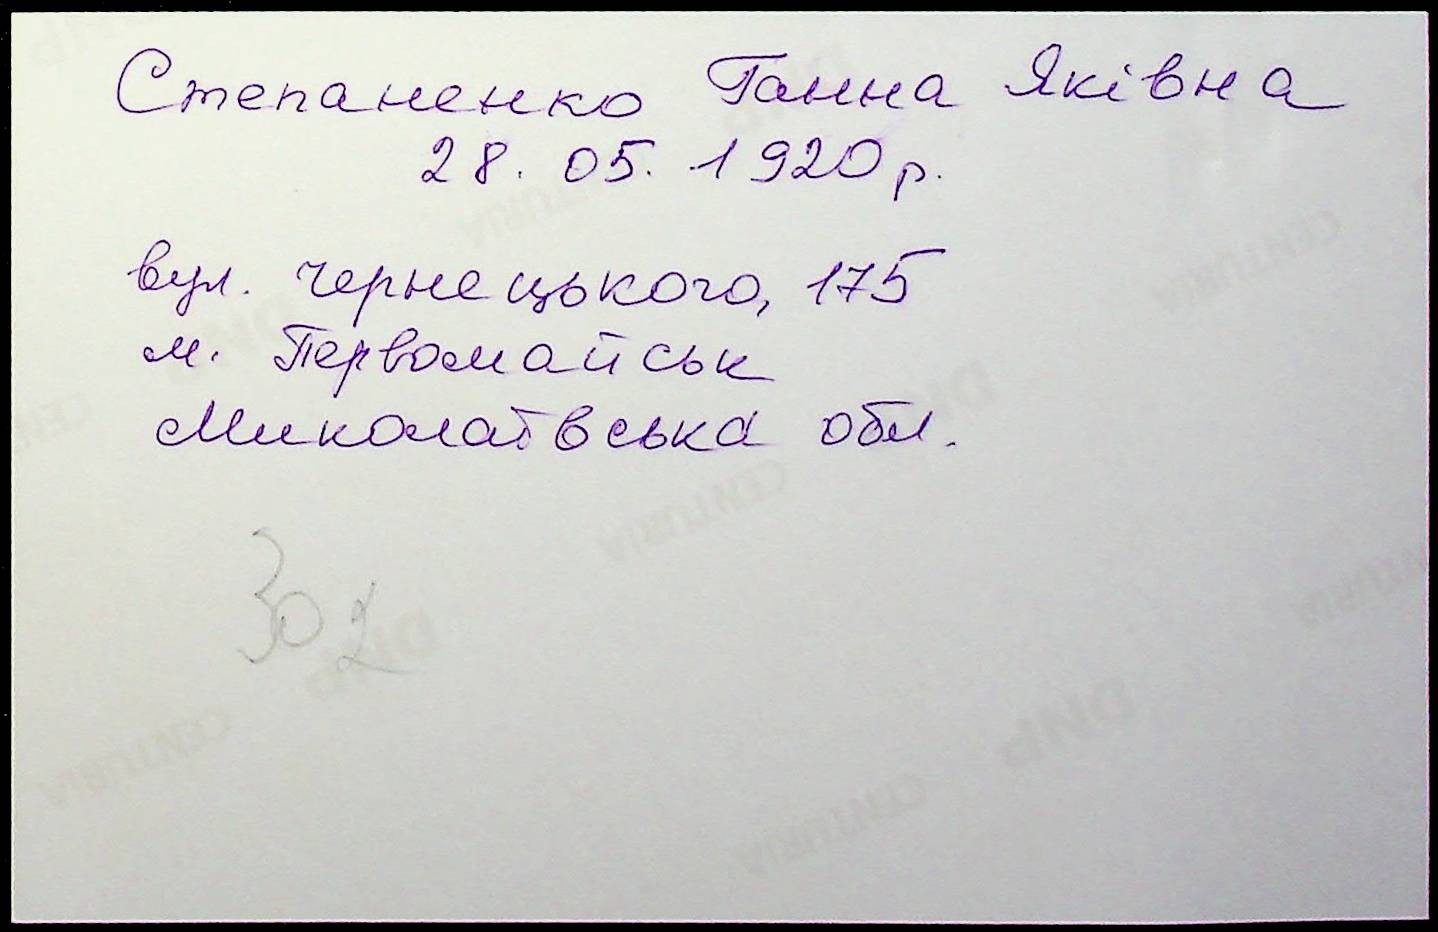 Степаненко Ганна Яківна
28. 05. 1920 р.
вул. Чернецького, 175
м. Первомайськ
Миколаївська обл.
302